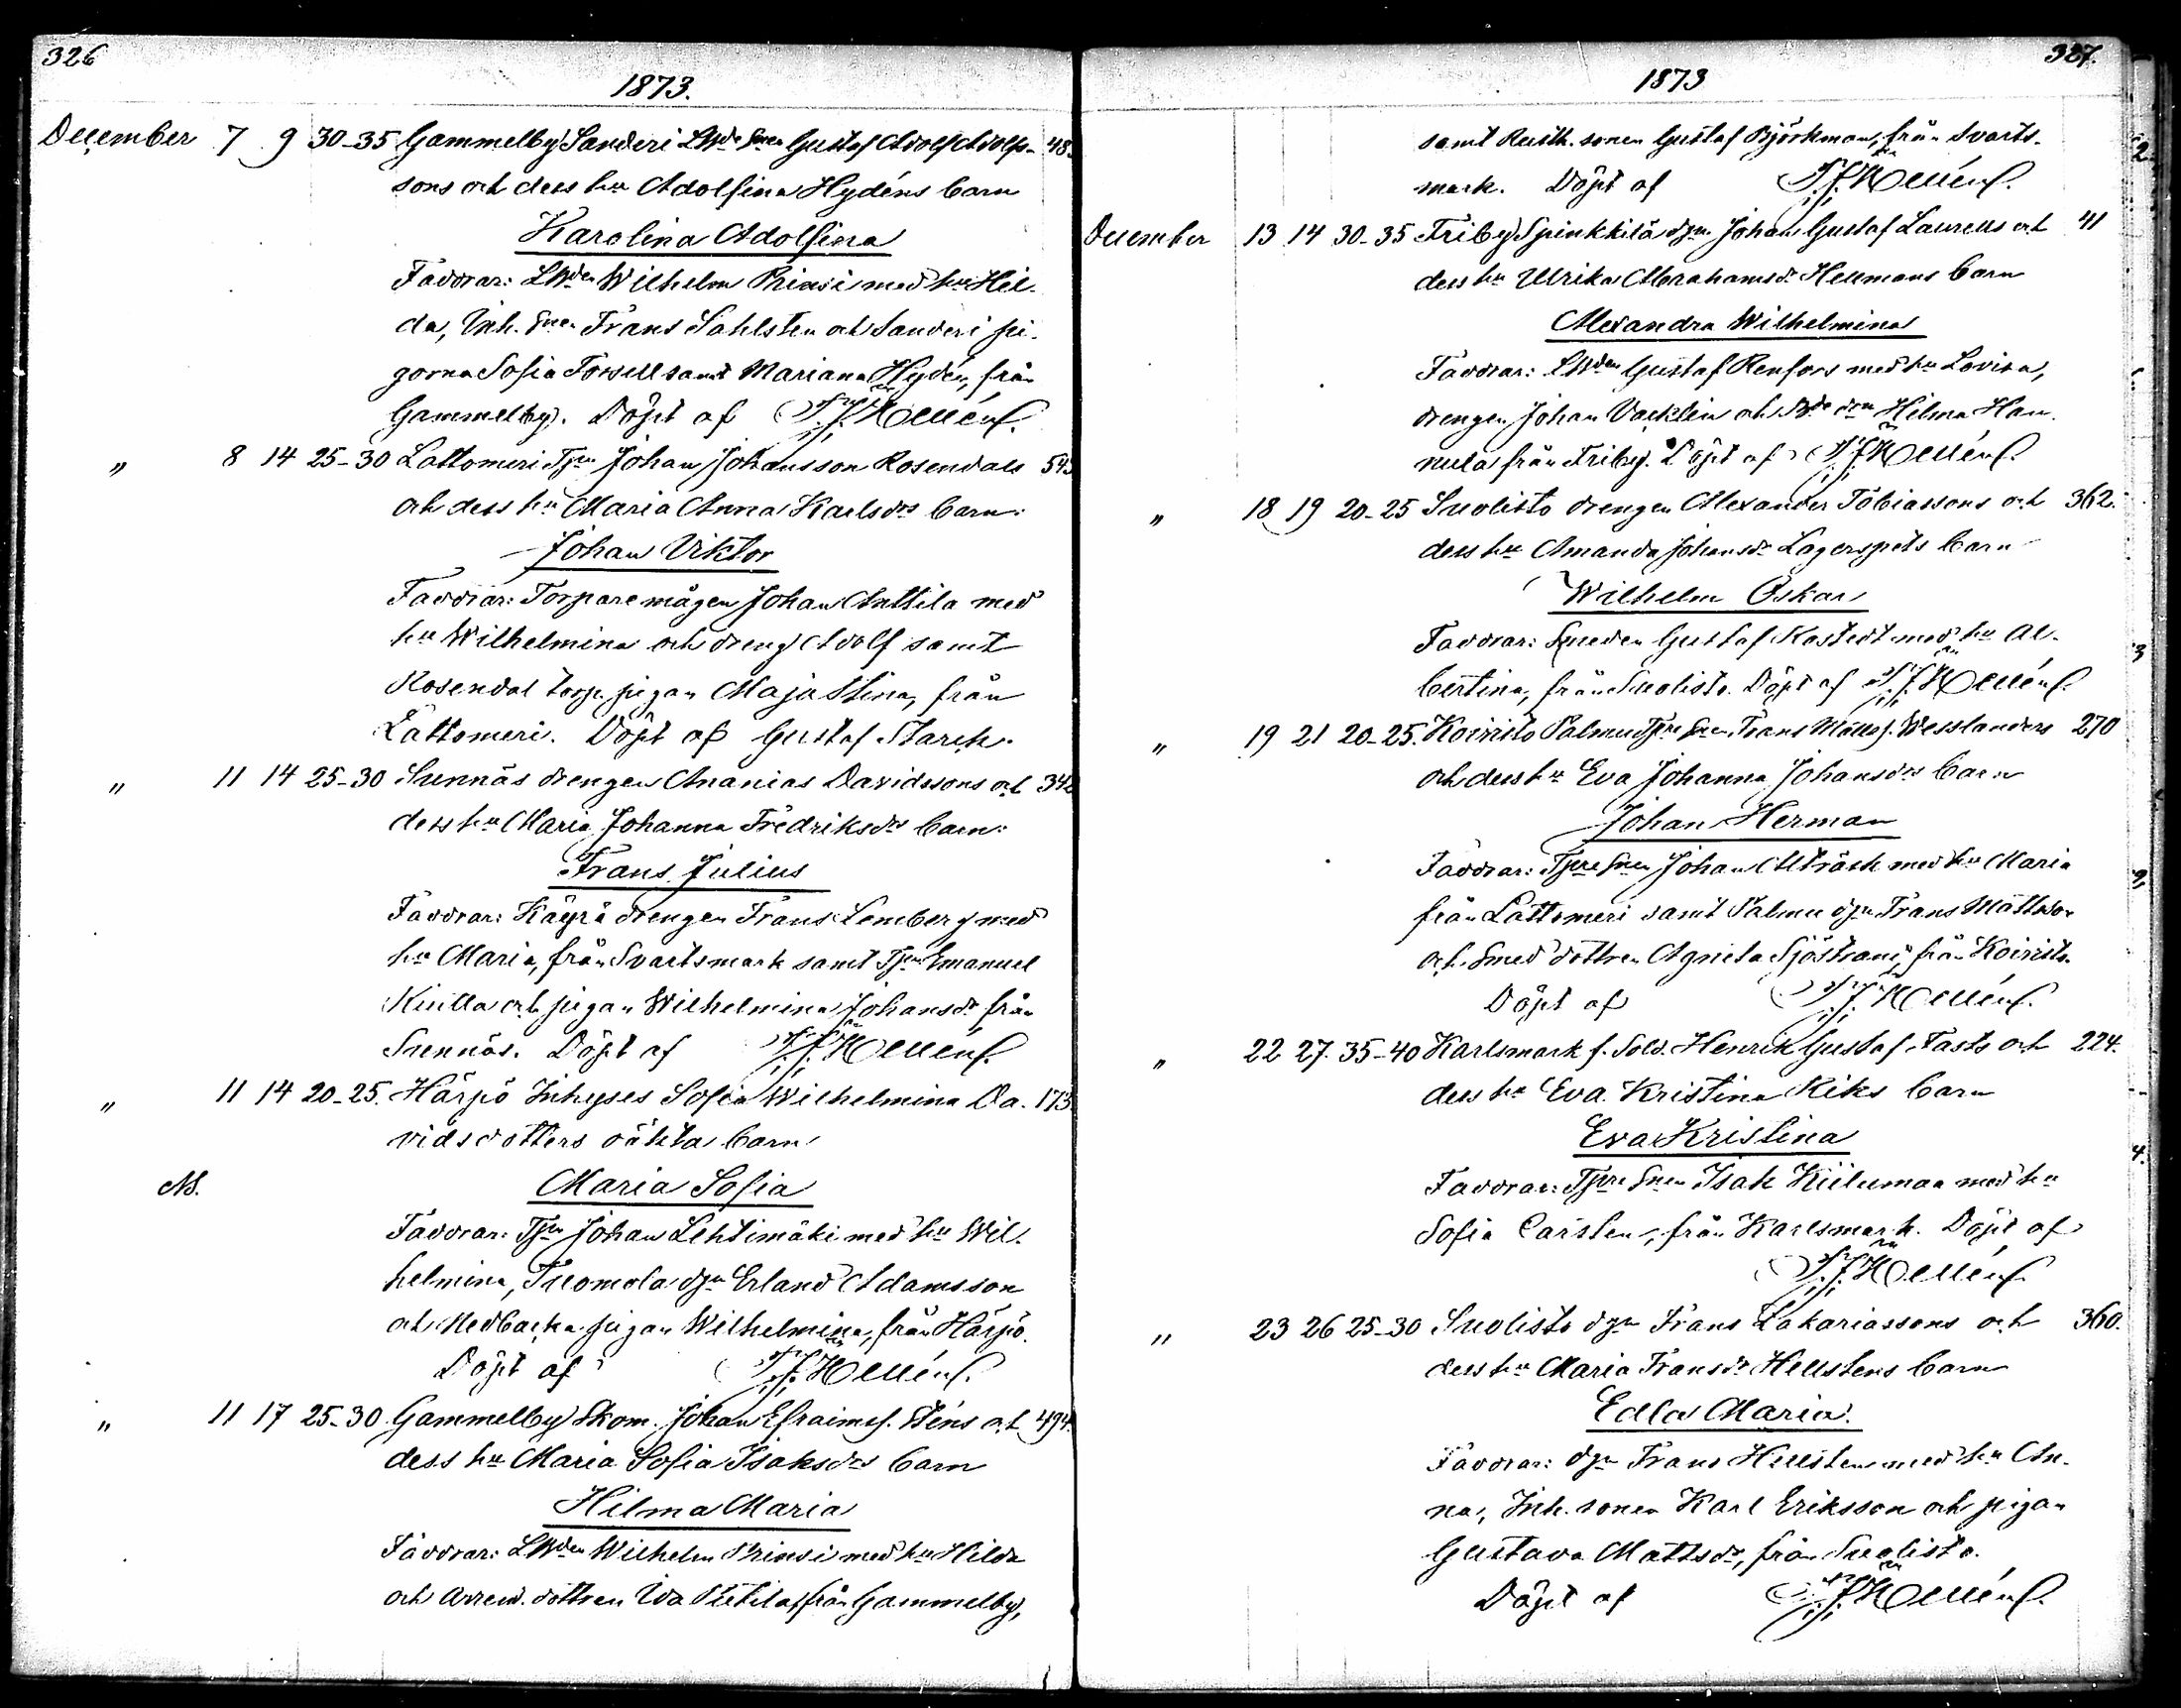 326
1873.
December 7 9 30-35 Gammelby Sanderi Gustaf Adolf Adolfs- 48.
sons och dess hu Adolfina Hydéns barn
Karolina Adolfina
Faddrar: Wilhelm Prinsi med hu Hil-
da, Inh. Frans Sahlsten och Sanderi pi-
gorna Sofia Forsell samt Mariana Hydén, från
Gammelby. Döpt af
" 8 14 25-30 Lattomeri Johan Johansson Rosendals 543
och dess hu Maria Anna Karlsdrs barn:
Johan Viktor
Faddrar: Torpare mågen Johan Anttila med
hu Wilhelmina och dreng Adolf samt
Rosendal torp. pigan Maja Stina, från
Lattomeri. Döpt af Gustaf Starck.
" 11 14 25-30 Sunnäs drengen Ananias Davidssons och 342
dess hu Maria Johanna Fredriksdrs barn:
Frans Julius
Faddrar: Käyrä drengen Frans Lemberg med
hu Maria, från Svartsmark samt Emanuel
och pigan Wilhelmina Johansdr från
Sunnäs. Döpt af
" 11 14 20-25. Härpö Inhyses Sofia Wilhelmina Da- 173
vidsdotters oäkta barn
Maria Sofia
Faddrar: Johan Lehtimäki med hu Wil-
helmina, Tuomola dgn Erland Adamsson
och Nedbacka pigan Wilhelmina, från Härpö.
Döpt af
" 11 17 25-30 Gammelby Skom. Johan Efraimss. Sténs och 494.
dess hu Maria Sofia Isaksdrs barn
Hilma Maria
Faddrar: Wilhelm Prinsi med hu Hilda
och Arrend. dottren Ida från Gammelby,
327.
1873
samt sonen Gustaf Björkman, från Svarts-
mark. Döpt af
December 13 14 30-35 Friby Spinkkilä dgn Johan Gustaf Laurells och 41
dess hu Ulrika Abrahamsdr Hellmans barn
Alexandra Wilhelmina
Faddrar: Gustaf Renfors med hu Lovisa,
drengen Johan Vacklin och Hilma Han-
nula från Friby. Döpt af
" 18 19 20-25 Suolisto drengen Alexander Tobiassons och 362.
dess hu Amanda Johansdr Lagerspets barn
Wilhelm Oskar
Faddrar: Smeden Gustaf Kostedt med hu Al-
bertina, från Suolisto. Döpt af
" 19 21 20-25. Koivisto Palmu Frans Mattss. Wesslanders 270
och dess hu Eva Johanna Johansdrs barn
Johan Herman
Faddrar: Johan med hu Maria
från Lattomeri samt Palmu dgn Frans Mattsson
och Smed dottren Agneta Sjöstrand, från Koivisto.
Döpt af
" 22 27. 35-40 Karlsmark f. Sold. Henrik Gustaf Fasts och 224.
dess hu Eva Kristina Riks barn
Eva Kristina
Faddrar: Isak Kiilumaa med hu
Sofia Carsten, från Karlsmark. Döpt af
" 23 26 25-30 Suolisto dgn Frans Zakariassons och 360.
dess hu Maria Fransdr Hellstens barn
Edla Maria.
Faddrar: dgn Frans Hellsten med hu An-
na, Inh. sonen Karl Eriksson och pigan
Gustava Mattsdr, från Suolisto.
Döpt af